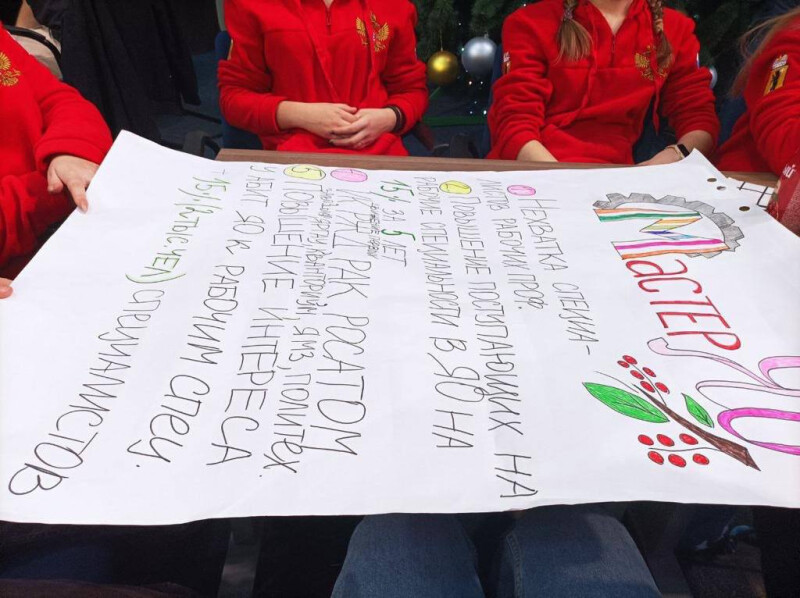 МАСТЕР ЯО
НЕХВАТКА СПЕЦИА-
ЛИСТОВ РАБОЧИХ ПРОФ.
ПОВЫШЕНИЕ ПОСТУПАЮЩИХ НА
РАБОЧИЕ СПЕЦИАЛЬНОСТИ В ЯО НА
15% ЗА 5 ЛЕТ
РОСАТОМ
ЯМЗ, ПОЛИТЕХ.
5 ПОВЫШЕНИЕ ИНТЕРЕСА
У АБИТ ЯО К РАБОЧИМ СПЕЦ.
ТЫС. ЧЕЛ) СПЕЦИАЛИСТОВ